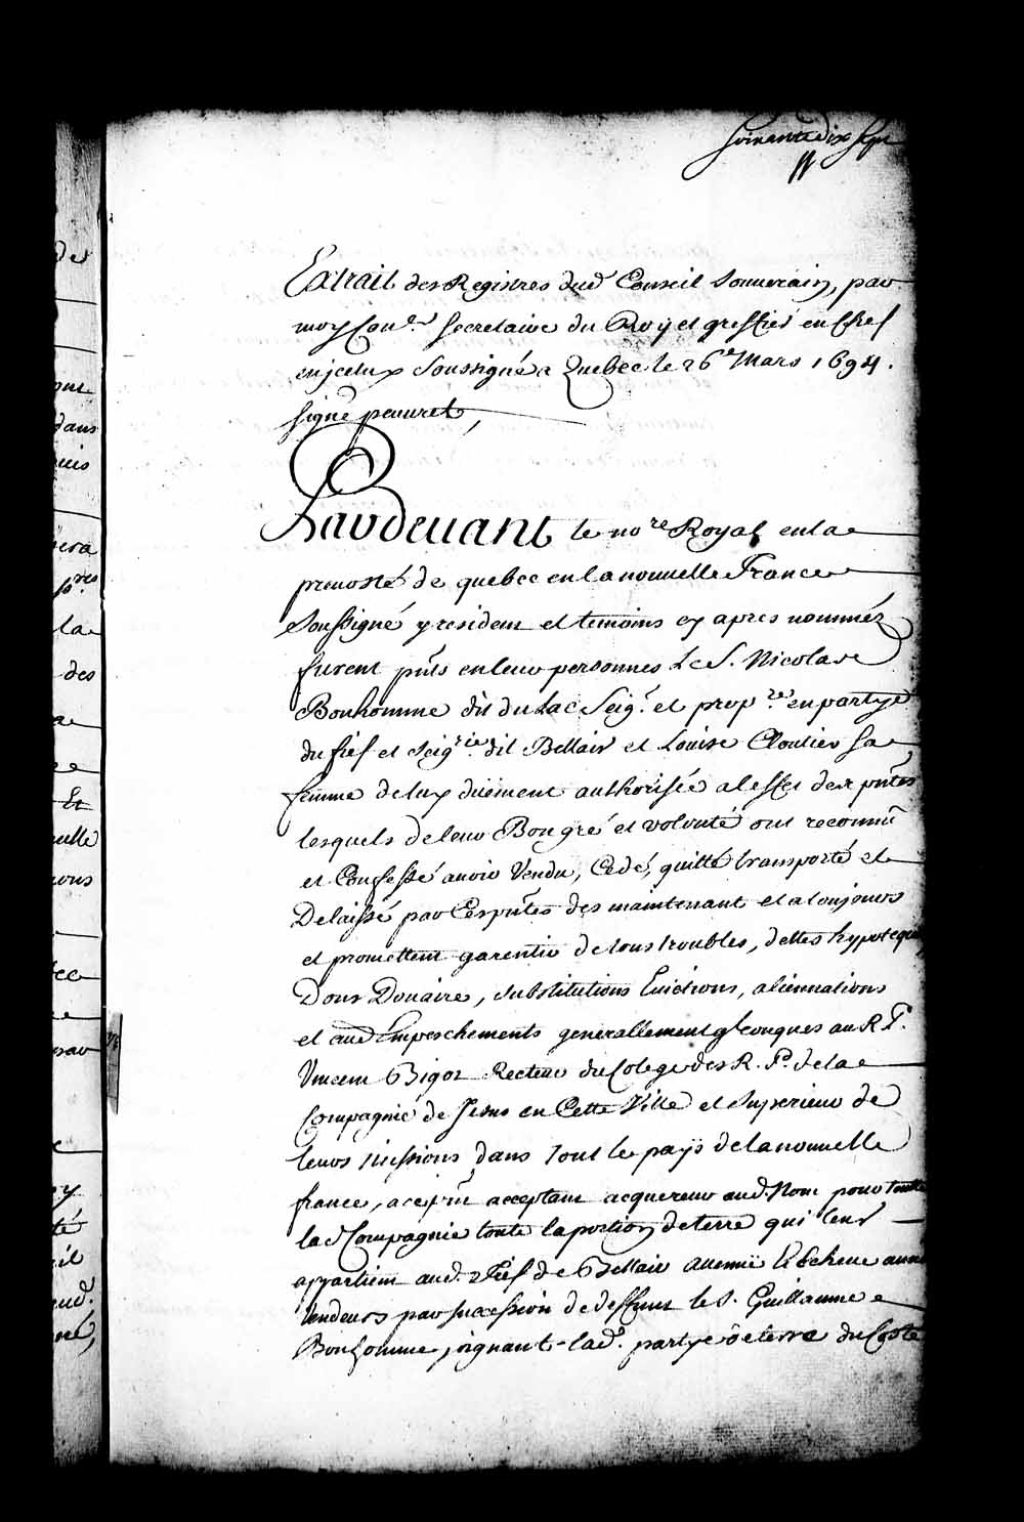 soixante dix sept
Extrait des Registres dud. Conseil Souverain, par
moy Con.er secretaire du Roy et greffier en chef
en jceluy Soussigné a Quebec le 26e Mars 1694.
signé peuvret,
Pardevant le no.re Royal en la
prevosté de quebec en la nouvelle France
soussigné y resident et temoins cy apres nommés
furent pnts en leurs personnes Le S. Nicolas
Bonhomme dit du Lac Seig.r et prop.re en partye
du fief et seig.rie dit Bellair et Louise Cloutier sa
femme de luy düement authorisée a l'effet des pntes
lesquels de leur Bon gré et volonté ont reconnu
et Confessé avoir Vendu, Cedé, quitté transporté et
Delaissé par Ces pntes des maintenant et a toujours
et promettent garentir de tous troubles, dettes hypoteques
Dons Douaire, substitutions Evictions, alienations
et Empeschements generallement qlconques au R. P.
Vincent Bigot Recteur du Colege des R. P. de la
Compagnie de Jesus en Cette Ville et Superieur de
leurs missions dans tout le pays de la nouvelle
france, a ce pnt acceptant acquereur aud. Nom pour toute
lad. Compagnie toute la portion de terre qui leur
appartient aud. Fief de Bellair avenüe et Echeue aux
Vendeurs par succession de deffunt le S. Guillaume
Bonhomme, joignant lad. partye de terre du Costé
des
dans
la
des
Et
nous
té